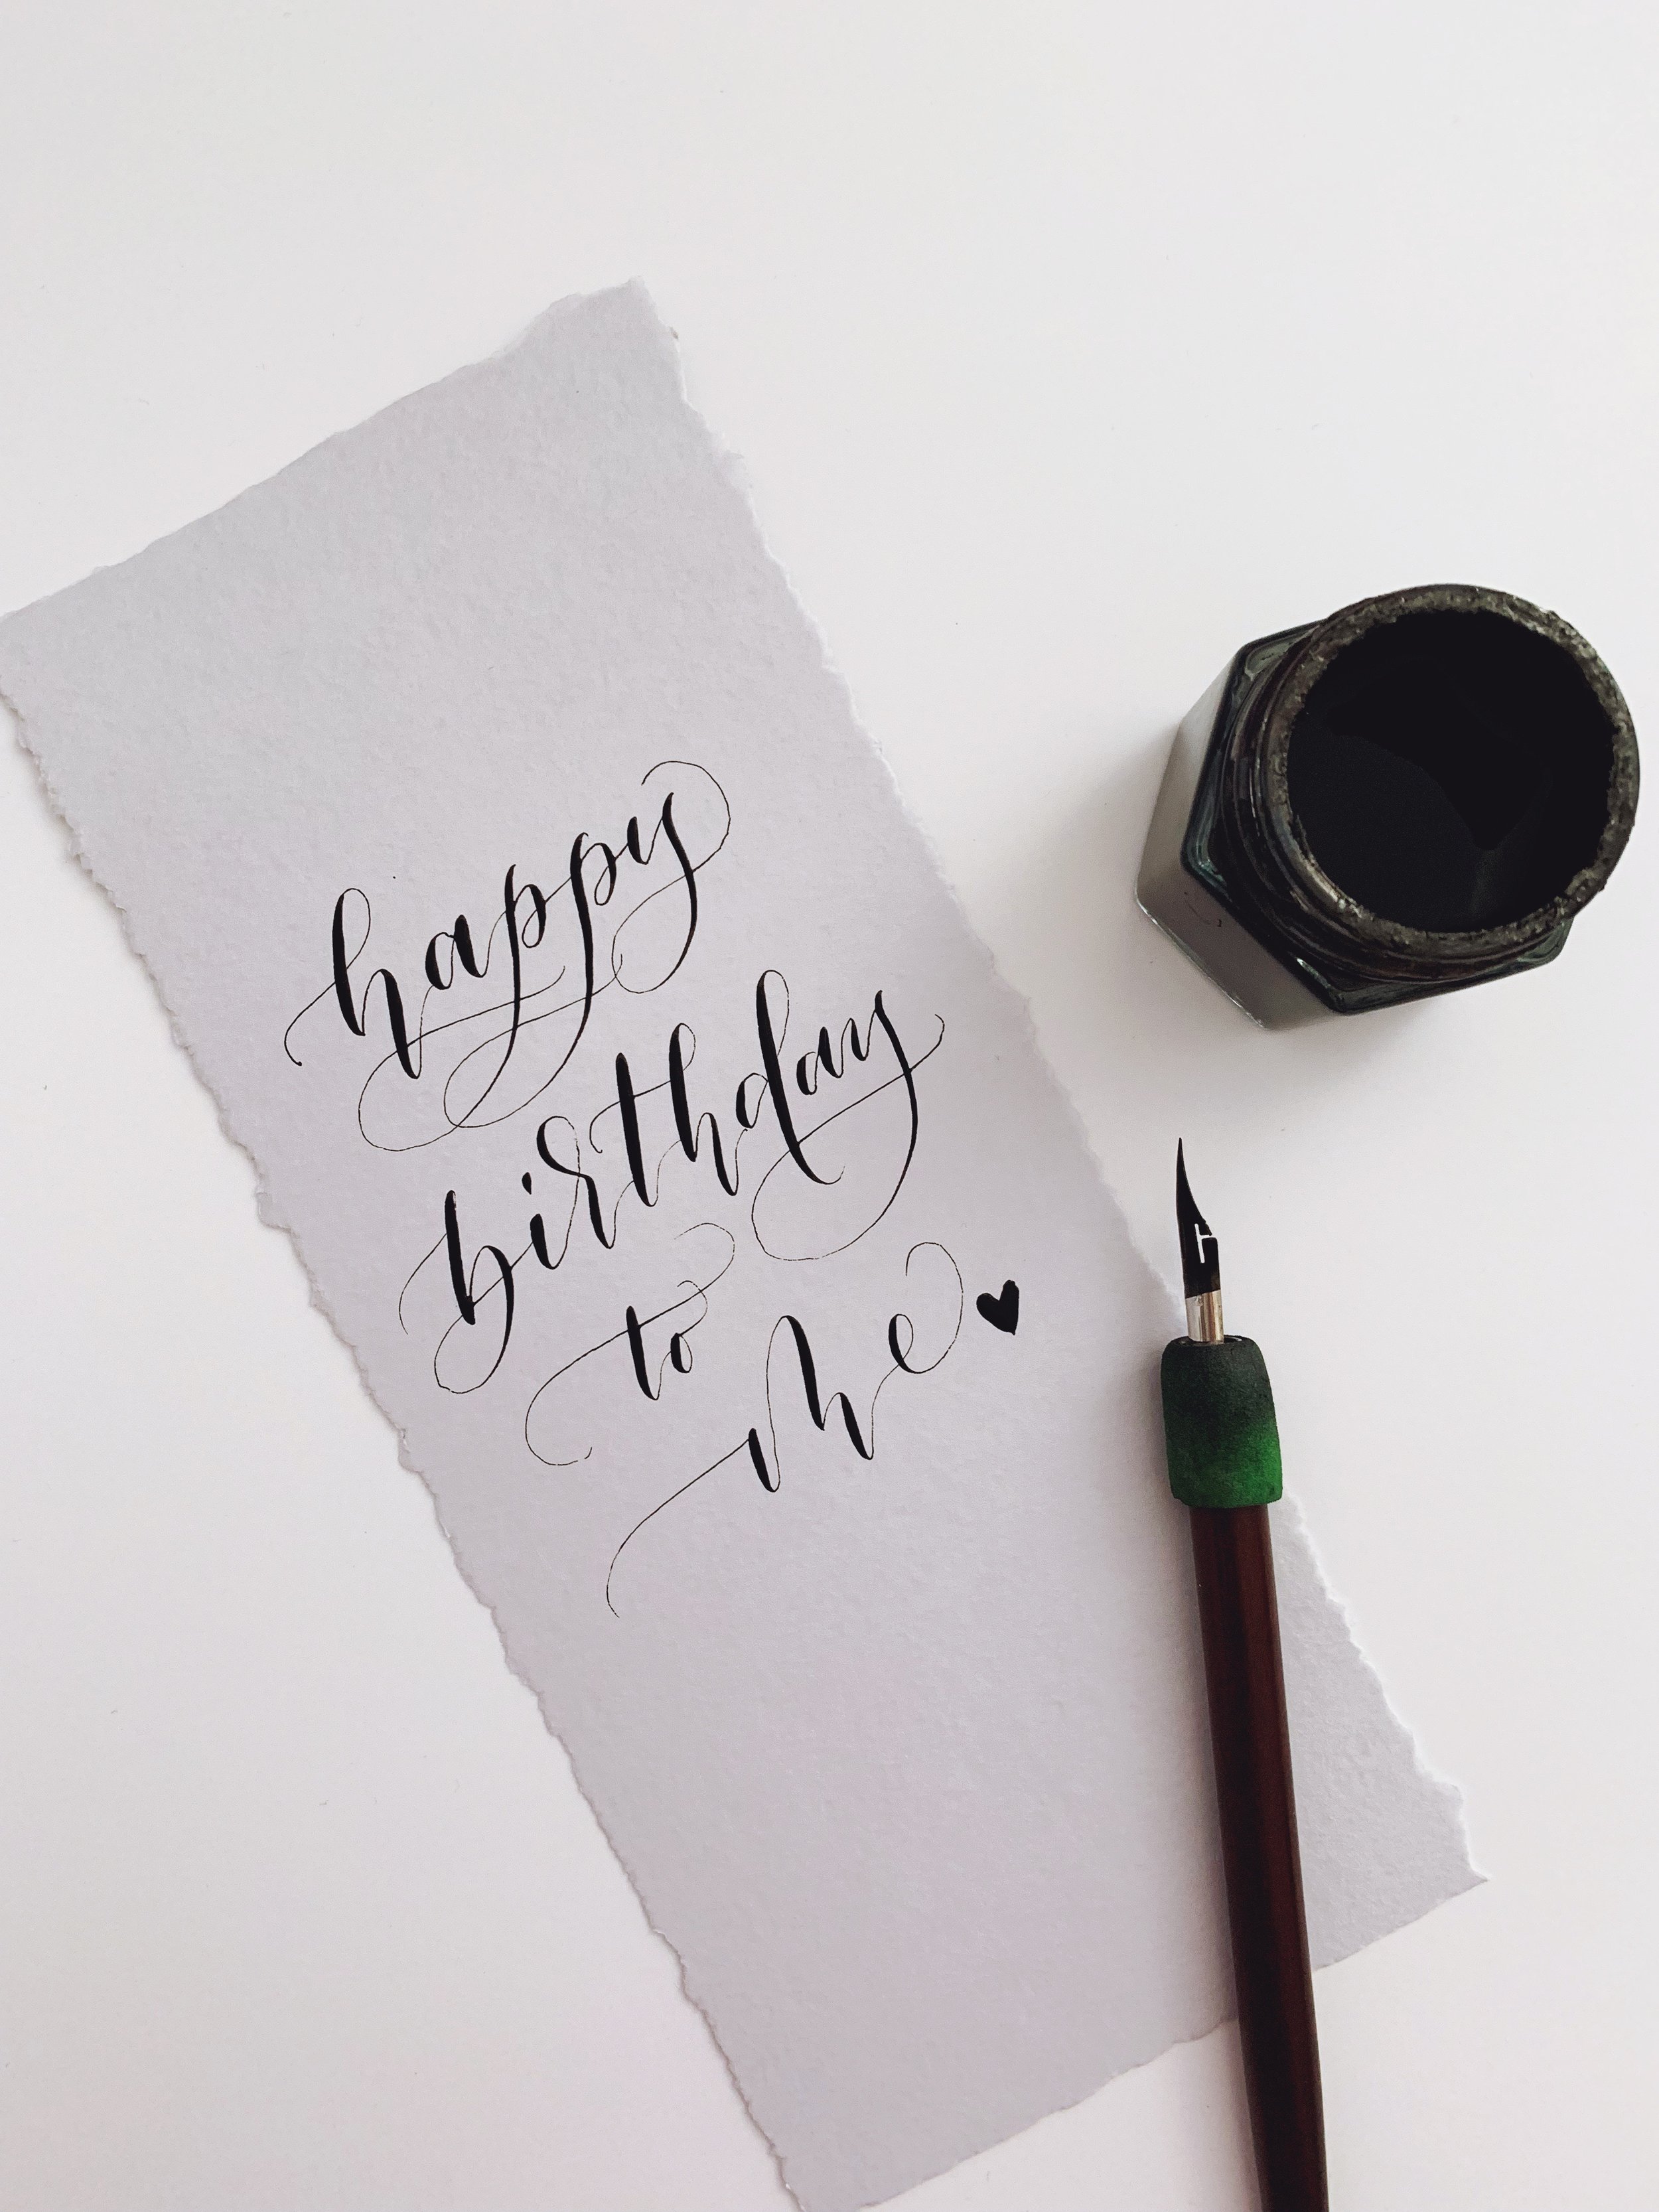 happy
birthday
to
me ♥